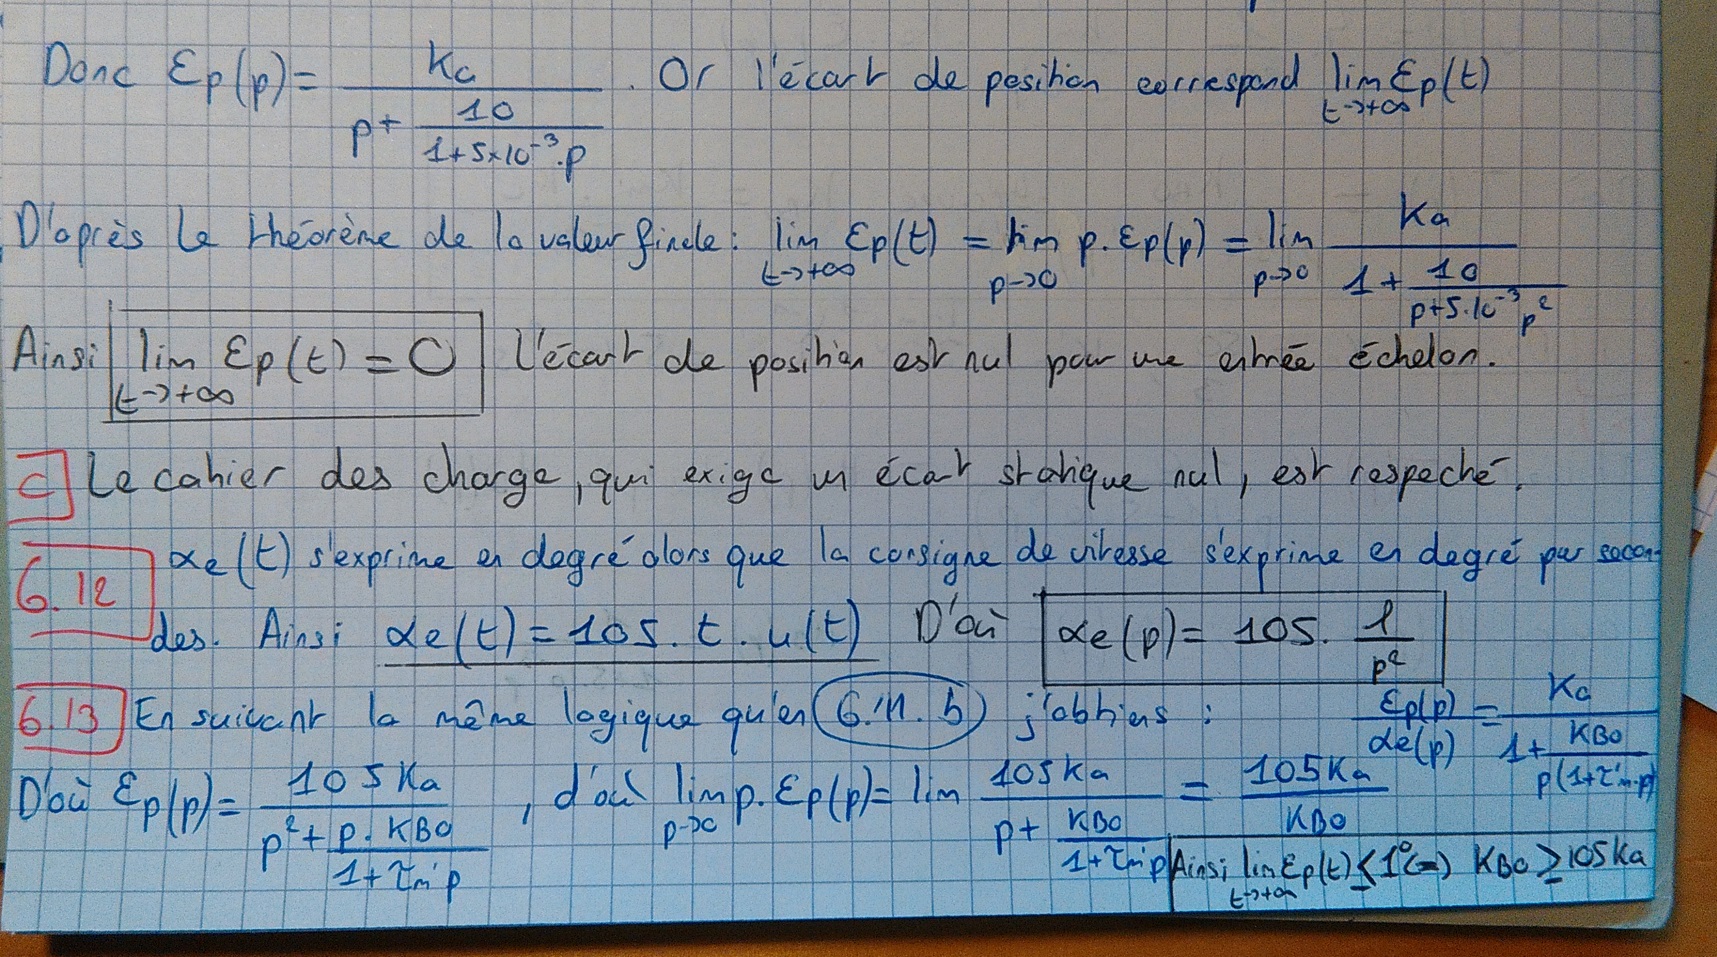 Donc εp(p) = Ka / (p + 10 / (1+5×10⁻³.p)) . Or l'écart de position correspond lim t→+∞ εp(t)
D'après le théorème de la valeur finale : lim t→+∞ εp(t) = lim p→0 p.εp(p) = lim p→0 Ka / (1 + 10 / (p+5.10⁻³p²))
Ainsi lim t→+∞ εp(t) = 0 L'écart de position est nul pour une entrée échelon.
C Le cahier des charge, qui exige un écart statique nul, est respecté.
6.12 αe(t) s'exprime en degré alors que la consigne de vitesse s'exprime en degré par secon-
des. Ainsi αe(t) = 105. t . u(t) D'où αe(p) = 105. 1/p²
6.13 En suivant la même logique qu'en 6.11.b j'obtiens : εp(p)/αe(p) = Ka / (1 + KBO / (p(1+τ'm.p)))
D'où εp(p) = 105Ka / (p² + p.KBO / (1+τm'p)) , d'où lim p→0 p.εp(p) = lim 105Ka / (p + KBO / (1+τm'p)) = 105Ka / KBO
Ainsi lim t→+∞ εp(t) ≤ 1° (=) KBO ≥ 105Ka